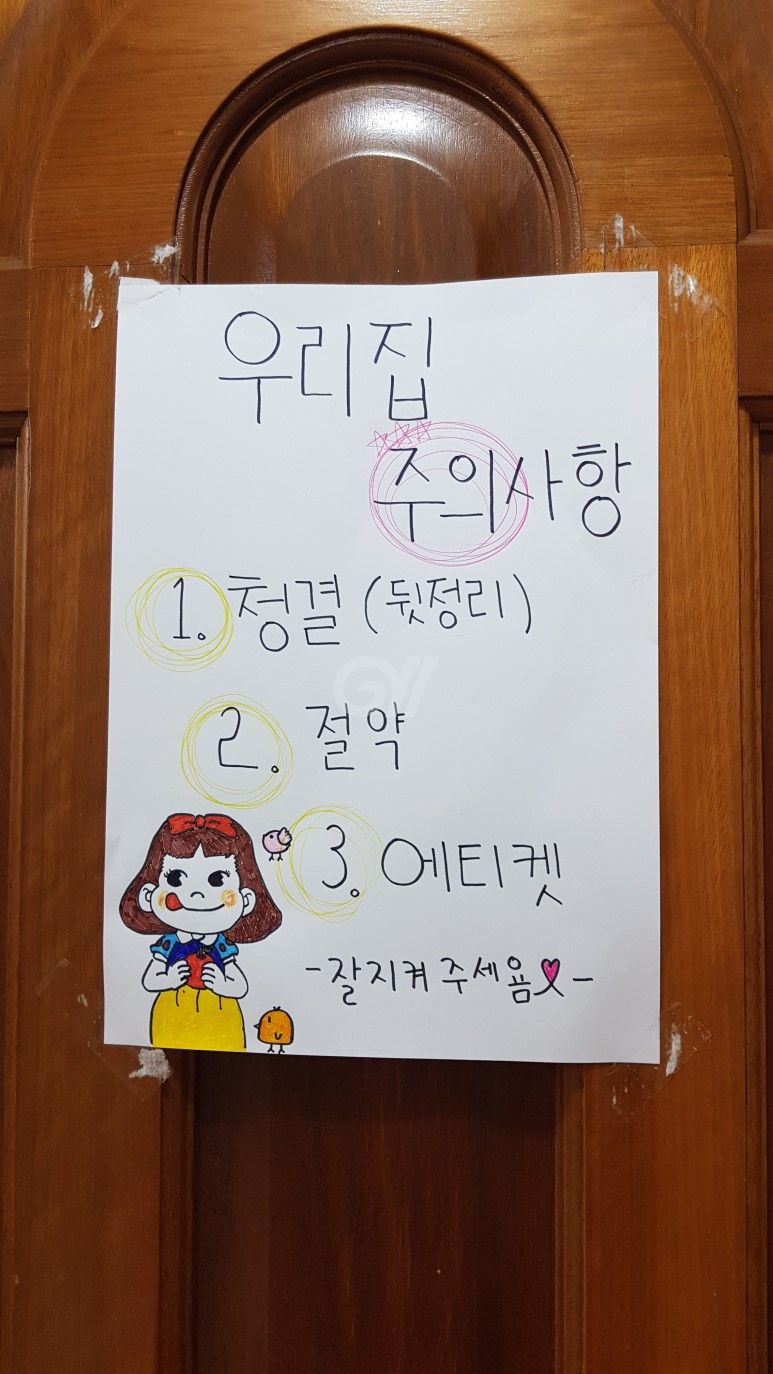 우리집
주의사항
1. 청결 (뒷정리)
GW
2. 절약
3. 에티켓
-잘지켜주세욤-